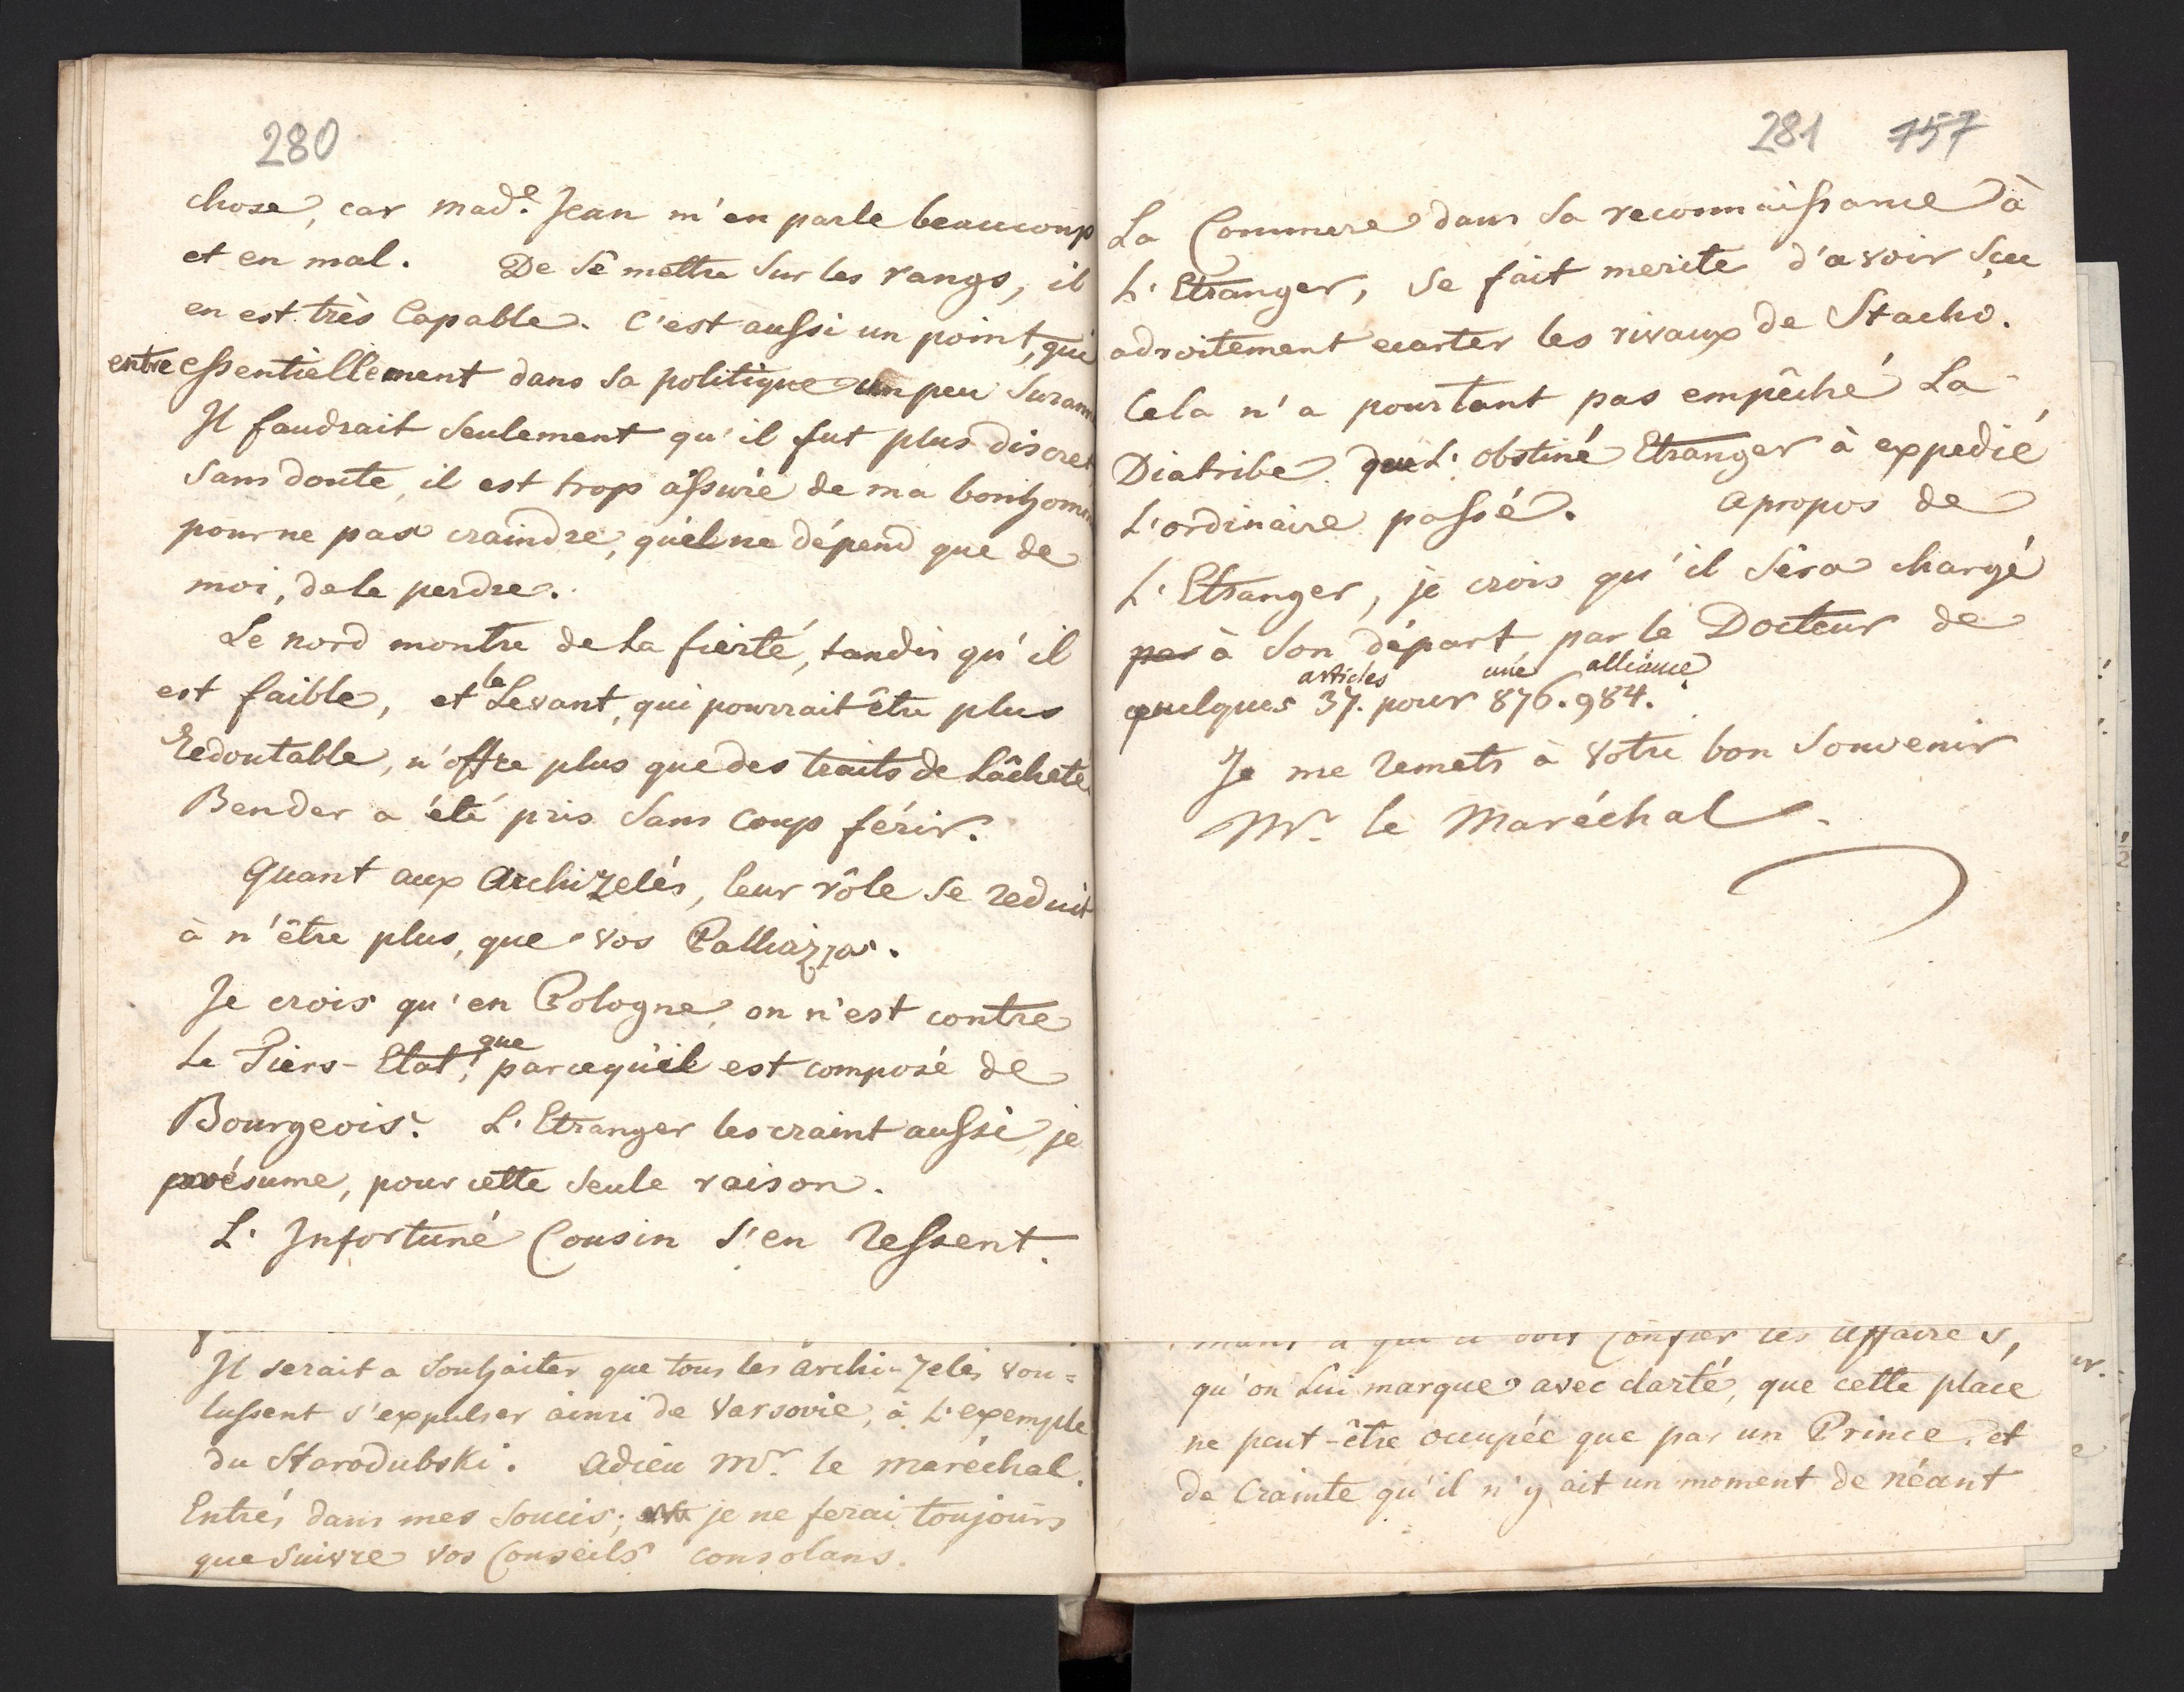 280
chose, car mad.e Jean m'en parle beaucoup
et en mal. De sê mettre sur les rangs, il
en est très Capable. C'est aussi un point, qui
entre essentiellement dans sa politique un peu
Il faudrait seulement qu'il fut plus discret,
sans doute, il est trop assuré de ma
pour ne pas craindre, qu'il ne dépend que de
moi, de le perdre.
Le nord montre de la fierté, tandis qu'il
est faible, et le Levant, qui pourrait être plus
redoutable, n'offre plus que des traits de Lâcheté.
Bender a été pris sans coup férir.
Quant aux Archizelés, leur rôle se reduit
à n'être plus, que vos
Je crois qu'en Pologne, on n'est contre
Le Tiers-Etat, que parcequ'il est composé de
Bourgeois. L'Etranger les craint aussi, je
présume, pour cette seule raison.
L'Infortuné Cousin s'en ressent.
Il serait a souhaiter que tous les archi-zelés vou=
lussent s'expulser ainsi de Varsovie, à l'exemple
du Starodubski. Adieu Mr. le maréchal.
Entrés dans mes soucis; je ne ferai toujours
que suivre vos Conseils consolans.
281 157
La Commere dans sa reconnaissance à
L'Etranger, se fait merite d'avoir sçu
adroitement ecarter les rivaux de Stacho.
Cela n'a pourtant pas empêché La
Diatribe que L'obstiné Etranger à expedié
L'ordinaire passé. Apropos de
L'Etranger, je crois qu'il sêra chargé
par à son départ par le Docteur de
articles une alliance
quelques 37. pour 876.984.
Je me remets à votre bon souvenir
Mr. le Maréchal.
confier ses affaires,
qu'on Lui marque avec clarté, que cette place
ne peut-être occupée que par un Prince, et
de Crainte qu'il n'y ait un moment de néant